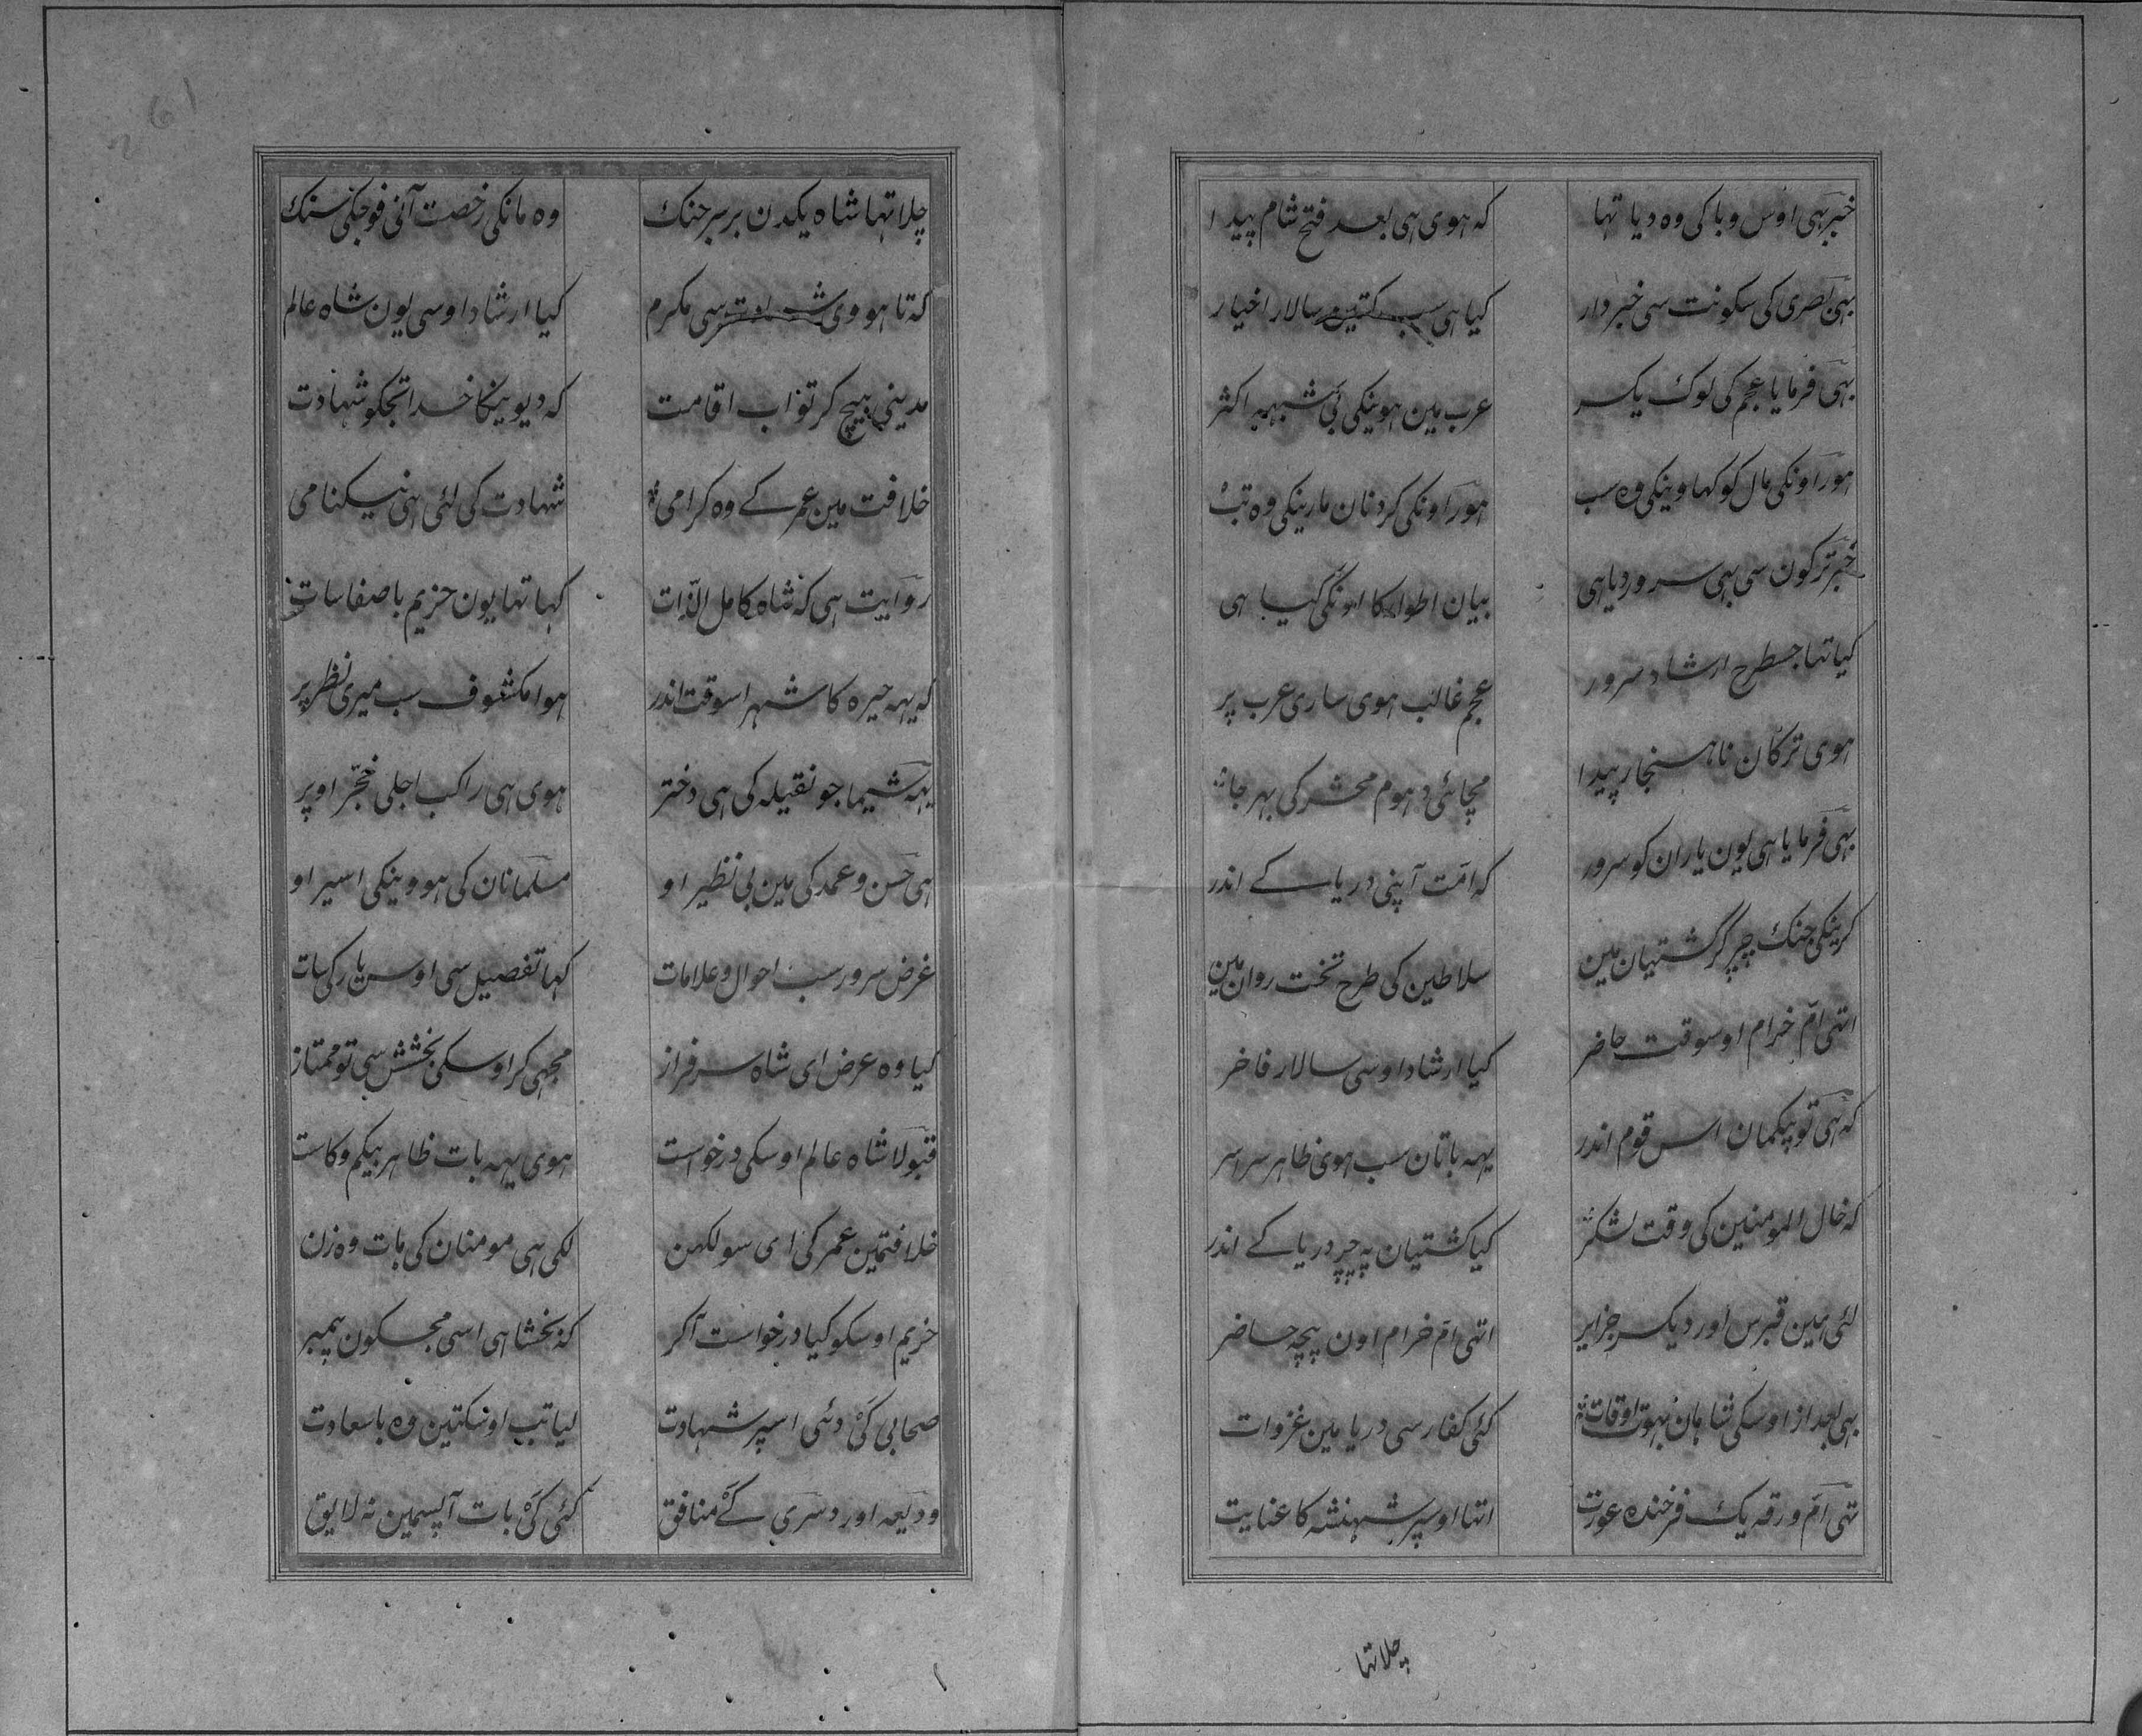 خبر بہی اوس وبا کی وہ دیا تہا کہ ہوی ہی بعد فتح شام پیدا
بہی بصری کی سکونت سی خبردار کیا ہی سب کتین سالار اخیار
بہی فرمایا عجم کی لوک یکسر عرب مین ہوینکی بی شبہہ اکثر
ہور اونکی مال کو کہاوینکی وہ سب ہور اونکی کردنان مارینکی وہ تب
خبر ترکون سی بہی سرور دیا ہی بیان اطوار کا اونکی کیا ہی
کیا تہا جسطرح ارشاد سرور عجم غالب ہوی ساری عرب پر
ہوی ترکان ناہنجار پیدا مچائی دہوم محشر کی بہر جا
بہی فرمایا ہی یون یاران کو سرور کہ امت اپنی دریا کے اندر
کرینکی جنک چڑ کر کشتیان مین سلاطین کی طرح تخت روان مین
اتہی ام خرام اوسوقت حاضر کیا ارشاد اوسی سالار فاخر
کہ ہی تو بیکمان اس قوم اندر یہہ باتان سب ہوی ظاہر سراسر
کہ خال المومنین کی وقت لشکر کیا کشتیان پہ چڑ دریا کے اندر
لئی ہین قبرس اور دیکر جزایر اتہی ام خرام اون بیچہ حاضر
بہی بعد از اوسکی شاہان بہوت اوقات کئی کفار سی دریا مین غزوات
تہی ام ورقہ یک فرخندہ عورت اتہا اوسپر شہنشہ کا عنایت
چلا تہا
چلا تہا شاہ یکدن بر سر جنک وہ مانکی رخصت آنی فوجکی سنک
کہ تا ہووی شہادت سی مکرم کیا ارشاد اوسی یون شاہ عالم
مدینی بیچ کر تو اب اقامت کہ دیوینکا خدا تجکو شہادت
خلافت مین عمر کے وہ کرامی شہادت کی لئی ہی نیکنامی
روایت ہی کہ شاہ کامل الذات کہا تہا یون خزیم باصفا سات
کہ یہہ حیرہ کا شہر اسوقت اندر ہوا مکشوف سب میری نظر پر
یہہ شیما جو نقیلہ کی ہی دختر ہوی ہی راکب اجلی خچر اوپر
ہی حسن و عمدکی مین بی نظیر او مسلمانان کی ہووینکی اسیر او
غرض سرور سب احوال و علامات کہا تفصیل سی اوس یار کی سات
کیا وہ عرض ای شاہ سرفراز مجہی کر اوسکی بخشش سی تو ممتاز
قبولا شاہ عالم اوسکی درخواست ہوی یہہ بات ظاہر بیکم وکاست
خلافتمین عمر کی ای سولکہن لکی ہی مومنان کی ہات وہ زن
خزیم اوسکو کیا درخواست آکر کہ بخشا ہی اسی مجکون پیمبر
صحابی کئی دئی اسپر شہادت لیا تب اونکتین وہ باسعادت
ودیعہ اور دسری کئے منافق کئی کئی بات آپسمین نہ لایق